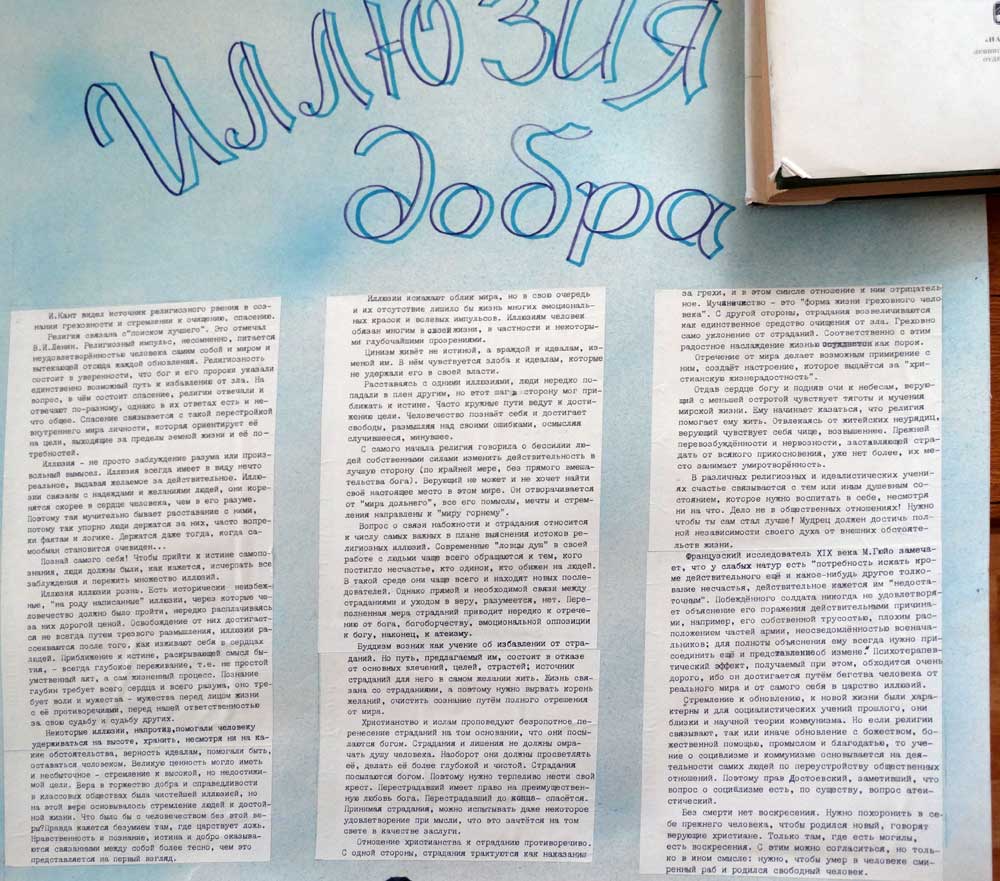 Иллюзия
добра
И.Кант видел источник религиозного рвения в соз-
нании греховности и стремлении к очищению, спасению.
Религия связана с "поиском лучшего". Это отмечал
В.И.Ленин. Религиозный импульс, несомненно, питается
неудовлетворённостью человека самим собой и миром и
вытекающей отсюда жаждой обновления. Религиозность
состоит в уверенности, что бог и его пророки указали
единственно возможный путь к избавлению от зла. На
вопрос, в чём состоит спасение, религии отвечали и
отвечают по-разному, однако в их ответах есть и не-
что общее. Спасение связывается с такой перестройкой
внутреннего мира личности, которая ориентирует её
на цели, выходящие за пределы земной жизни и её по-
требностей.
Иллюзия - не просто заблуждение разума или произ-
вольный вымысел. Иллюзия всегда имеет в виду нечто
реальное, выдавая желаемое за действительное. Иллю-
зии связаны с надеждами и желаниями людей, они коре-
нятся скорее в сердце человека, чем в его разуме.
Поэтому так мучительно бывает расставание с ними,
потому так упорно люди держатся за них, часто вопре-
ки фактам и логике. Держатся даже тогда, когда са-
мообман становится очевиден...
Познай самого себя! Чтобы прийти к истине самопо-
знания, люди должны были, как кажется, исчерпать все
заблуждения и пережить множество иллюзий.
Иллюзия иллюзии рознь. Есть исторически неизбеж-
ные, "на роду написанные" иллюзии, через которые че-
ловечество должно было пройти, нередко расплачиваясь
за них дорогой ценой. Освобождение от них достигает-
ся не всегда путем трезвого размышления, иллюзии ра-
ссеиваются после того, как изживают себя в сердцах
людей. Приближение к истине, раскрывающей смысл бы-
тия, - всегда глубокое переживание, т.е. не простой
умственный акт, а сам жизненный процесс. Познание
глубин требует всего сердца и всего разума, оно тре-
бует воли и мужества - мужества перед лицом жизни
с её противоречиями, перед нашей ответственностью
за свою судьбу и судьбу других.
Некоторые иллюзии, напротив,помогали человеку
удерживаться на высоте, хранить, несмотря ни на ка-
кие обстоятельства, верность идеалам, помогали быть,
оставаться человеком. Великую ценность могло иметь
и несбыточное - стремление к высокой, но недостижи-
мой цели. Вера в торжество добра и справедливости
в классовых обществах была чистейшей иллюзией, но
на этой вере основывалось стремление людей к достой-
ной жизни. Что было бы с человечеством без этой ве-
ры?Правда кажется безумием там, где царствует ложь.
Нравственность и познание, истина и добро оказыва-
ются связанными между собой более тесно, чем это
представляется на первый взгляд.
Иллюзии искажают облик мира, но в свою очередь
и их отсутствие лишило бы жизнь многих эмоциональ-
ных красок и волевых импульсов. Иллюзиям человек
обязан многим в своей жизни, в частности и некоторы-
ми глубочайшими прозрениями.
Цинизм живёт не истиной, а враждой к идеалам, из-
меной им. В нём чувствуется злоба к идеалам, которые
не удержали его в своей власти.
Расставаясь с одними иллюзиями, люди нередко по-
падали в плен другим, но этот шаг в сторону мог при-
ближать к истине. Часто кружные пути ведут к дости-
жению цели. Человечество познаёт себя и достигает
свободы, размышляя над своими ошибками, осмысляя
случившееся, минувшее.
С самого начала религия говорила о бессилии лю-
дей собственными силами изменить действительность в
лучшую сторону (по крайней мере, без прямого вмеша-
тельства бога). Верующий не может и не хочет найти
своё настоящее место в этом мире. Он отворачивается
от "мира дольнего", все его помыслы, мечты и стрем-
ления направлены к "миру горнему".
Вопрос о связи набожности и страдания относится
к числу самых важных в плане выяснения истоков ре-
лигиозных иллюзий. Современные "ловцы душ" в своей
работе с людьми чаще всего обращаются к тем, кого
постигло несчастье, кто одинок, кто обижен на людей.
В такой среде они чаще всего и находят новых после-
дователей. Однако прямой и необходимой связи между
страданиями и уходом в веру, разумеется, нет. Пере-
полненная мера страданий приводит нередко к отрече-
нию от бога, богоборчеству, эмоциональной оппозиции
к богу, наконец, к атеизму.
Буддизм возник как учение об избавлении от стра-
даний. Но путь, предлагаемый им, состоит в отказе
от основных влечений, целей, страстей; источник
страданий для него в самом желании жить. Жизнь свя-
зана со страданиями, а поэтому нужно вырвать корень
желаний, очистить сознание путём полного отрешения
от мира.
Христианство и ислам проповедуют безропотное пе-
ренесение страданий на том основании, что они посы-
лаются богом. Страдания и лишения не должны омра-
чать душу человека. Наоборот они должны просветлять
её, делать её более глубокой и чистой. Страдания
посылаются богом. Поэтому нужно терпеливо нести свой
крест. Перестрадавший имеет право на преимуществен-
ную любовь бога. Перестрадавший до конца- спасётся.
Принимая страдания, можно испытывать даже некоторое
удовлетворение при мысли, что это зачтётся на том
свете в качестве заслуги.
Отношение христианства к страданию противоречиво.
С одной стороны, страдания трактуются как наказание
за грехи, и в этом смысле отношение к ним отрицатель-
ное. Мученичество - это "форма жизни греховного чело-
века". С другой стороны, страдания возвеличиваются
как единственное средство очищения от зла. Греховно
само уклонение от страданий. Соответственно с этим
радостное наслаждение жизнью осуждается как порок.
Отречение от мира делает возможным примирение с
ним, создаёт настроение, которое выдаётся за "хри-
стианскую жизнерадостность".
Отдав сердце богу и подняв очи к небесам, верую-
щий с меньшей остротой чувствует тяготы и мучения
мирской жизни. Ему начинает казаться, что религия
помогает ему жить. Отвлекаясь от житейских неурядиц,
верующий чувствует себя чище, возвышеннее. Прежней
перевозбуждённости и нервозности, заставляющей стра-
дать от всякого прикосновения, уже нет более, их ме-
сто занимает умиротворённость.
В различных религиозных и идеалистических учени-
ях счастье связывается с тем или иным душевным со-
стоянием, которое нужно воспитать в себе, несмотря
ни на что. Дело не в общественных отношениях! Нужно
чтобы ты сам стал лучше! Мудрец должен достичь пол-
ной независимости своего духа от внешних обстояте-
льств жизни.
Французский исследователь XIX века М.Гюйо замеча-
ет, что у слабых натур есть "потребность искать кро-
ме действительного ещё и какое-нибудь другое толко-
вание несчастья, действительное кажется им "недоста-
точным". Побеждённого солдата никогда не удовлетворя-
ет объяснение его поражения действительными причина-
ми, например, его собственной трусостью, плохим рас-
положением частей армии, неосведомлённостью военача-
льников; для полноты объяснения ему всегда нужно при-
соединить ещё и представление об измене." Психотерапев-
тический эффект, получаемый при этом, обходится очень
дорого, ибо он достигается путём бегства человека от
реального мира и от самого себя в царство иллюзий.
Стремление к обновлению, к новой жизни были харак-
терны и для социалистических учений прошлого, они
близки и научной теории коммунизма. Но если религии
связывают, так или иначе обновление с божеством, бо-
жественной помощью, промыслом и благодатью, то уче-
ние о социализме и коммунизме основывается на дея-
тельности самих людей по переустройству общественных
отношений. Поэтому прав Достоевский, заметивший, что
вопрос о социализме есть, по существу, вопрос атеи-
стический.
Без смерти нет воскресения. Нужно похоронить в се-
бе прежнего человека, чтобы родился новый, говорят
верующие христиане. Только там, где есть могилы,
есть воскресения. С этим можно согласиться, но толь-
ко в ином смысле: нужно, чтобы умер в человеке сми-
ренный раб и родился свободный человек.